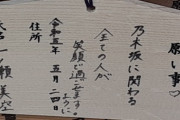 願い事
乃木坂に関わる
全ての人が
笑顔で過ごせますように
令和五年 五月二四日
住所
一ノ瀬美空